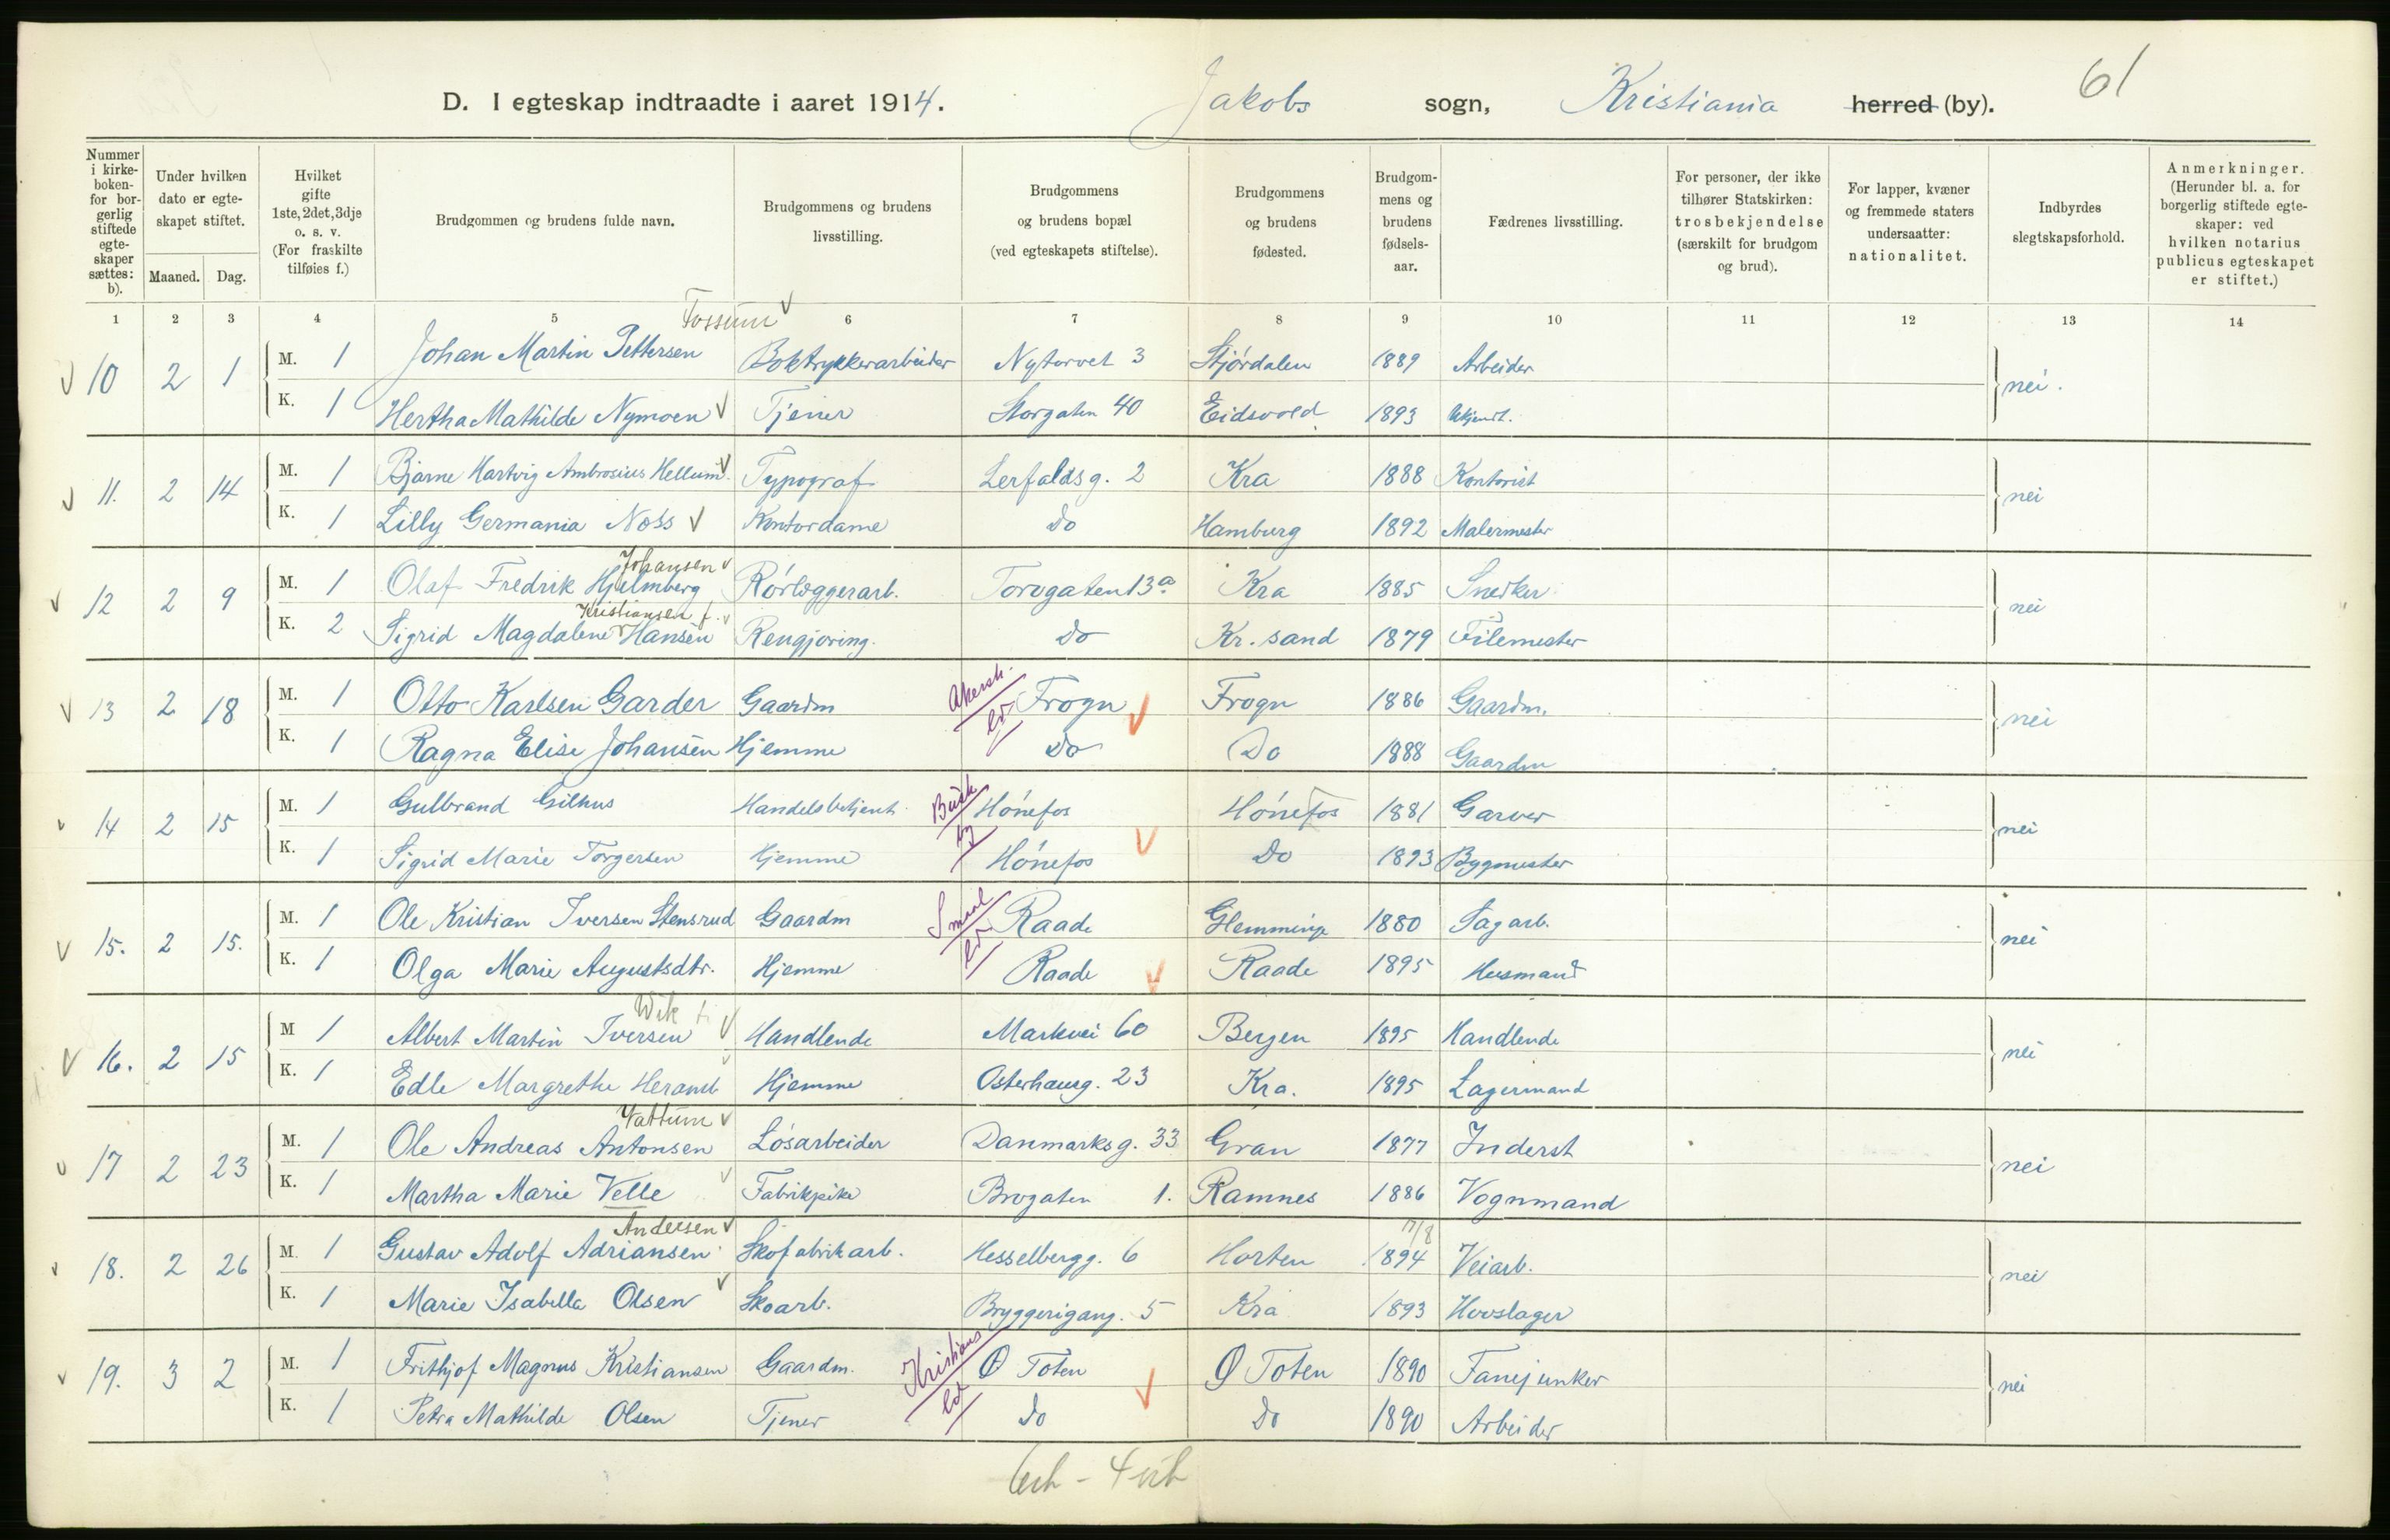 61
D. I egteskap indtraadte i aaret 1914. Jakobs sogn, Kristiania herred (by).
Nummer i kirke-boken- for bor-gerlig stiftede egte-skaper sættes: b).
Under hvilken dato er egte-skapet stiftet.
Maaned. Dag.
Hvilket gifte 1ste, 2det, 3dje o. s. v. (For fraskilte tilføies f.)
Brudgommen og brudens fulde navn.
Brudgommens og brudens livsstilling.
Brudgommens og brudens bopæl (ved egteskapets stiftelse).
Brudgommens og brudens fødested.
Brudgom-mens og brudens fødsels-aar.
Fædrenes livsstilling.
For personer, der ikke tilhører Statskirken: trosbekjendelse (særskilt for brudgom og brud).
For lapper, kvæner og fremmede staters undersaatter: nationalitet.
Indbyrdes slegtskapsforhold.
Anmerkninger. (Herunder bl. a. for borgerlig stiftede egte-skaper: ved hvilken notarius publicus egteskapet er stiftet.)
1 2 3 4 5 6 7 8 9 10 11 12 13 14
Fossum
10 2 1 M. 1 Johan Martin Pettersen Boktrykkerarbeider Nytorvet 3 Stjørdalen 1889 Arbeider nei.
K. 1 Hertha Mathilde Nymoen Tjener Storgaten 40 Eidsvold 1893 Ukjendt.
11. 2 14 M. 1 Bjarne Hartvig Ambrosius Hellum Typograf Lerfaldsg. 2 Kra 1888 Kontorist nei
K. 1 Lilly Germania Noss Kontordame Do Hamburg 1892 Malermester
Johansen
12 2 9 M. 1 Olaf Fredrik Hjelmberg Rørlæggerarb. Torvgaten 13a Kra 1885 Snedker nei
Kristiansen f.
K. 2 Sigrid Magdalene Hansen Rengjøring. Do Kr. sand 1879 Filemester
Akersh.
13 2 18 M. 1 Otto Karlsen Garder Gaardm ld Frogn Frogn 1886 Gaardm. nei
K. 1 Ragna Elise Johansen Hjemme Do Do 1888 Gaardm
14 2 15 M. 1 Gulbrand Gilhus Handelsbetjent Busk Hønefos Hønefos 1881 Garver nei
K. 1 Sigrid Marie Torgersen Hjemme by Hønefos Do 1893 Bygmester
15. 2 15. M. 1 Ole Kristian Iversen Stensrud Gaardm Smaal Raade Glemminge 1880 Sagarb. nei
K. 1 Olga Marie Augustsdtr. Hjemme ld Raade Raade 1895 Husmand
Wik f.
16. 2 15 M 1 Albert Martin Iversen Handlende Markvei 60 Bergen 1895 Handlende nei
K. 1 Edle Margrethe Heramb Hjemme Osterhausg. 23 Kra. 1895 Lagermand
Vattum
17 2 23 M. 1 Ole Andreas Antonsen Løsarbeider Danmarksg. 33 Gran 1877 Inderst nei
K. 1 Martha Marie Velle Fabrikpike Brogaten 1. Ramnes 1886 Vognmand
Andersen 17/8
18. 2 26 M. 1 Gustav Adolf Adriansen Skofabrikarb. Hesselbergg. 6 Horten 1894 Veiarb. nei
K. 1 Marie Isabella Olsen Skoarb. Bryggerigang. 5 Kra 1893 Hovslager
19. 3 2 M. 1 Frithjof Magnus Kristiansen Gaardm. Kristians Ø Toten Ø Toten 1890 Fanejunker nei
K. 1 Petra Mathilde Olsen Tjener ld Do Do 1890 Arbeider